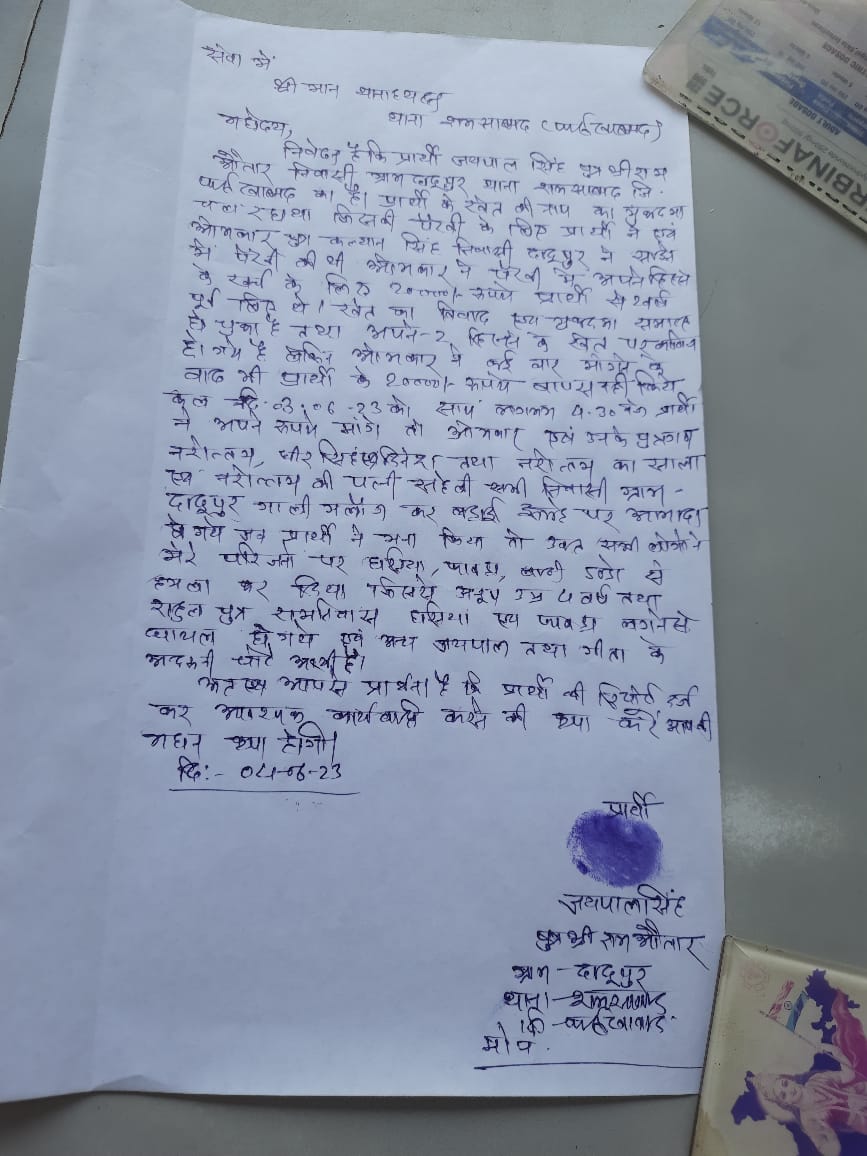 सेवा में
श्री मान थानाध्यक्ष
थाना शमसाबाद (फर्रुखाबाद)
महोदय,
निवेदन है कि प्रार्थी जयपाल सिंह पुत्र श्री राम
औतार निवासी ग्राम दादूपुर थाना शमसाबाद जि.
फर्रुखाबाद का है। प्रार्थी के खेत की नाप का मुकदमा
चल रहा था जिसकी पैरवी के लिए प्रार्थी ने एवं
ओमकार पुत्र कल्यान सिंह निवासी दादूपुर ने साझे
में पैरवी की थी ओमकार ने पैरवी में अपने हिस्से
के खर्चा के लिए 20000/- रूपये प्रार्थी से 2 वर्ष
पूर्व लिए थे। खेत का विवाद एवं मुकदमा समाप्त
हो चुका है तथा अपने-2 हिस्से के खेत पर काबिज
हो गये है लेकिन ओमकार ने कई बार माँगने के
बाद भी प्रार्थी के 20000/- रूपये वापस नही किये
कल दि. 03.06-23 को सायं लगभग 4.30 बजे प्रार्थी
ने अपने रूपये मांगे तो ओमकार एवं उनके पुत्रगण
नरोत्तम, वीर सिंह दिनेश तथा नरोत्तम का साला
एवं नरोत्तम की पत्नी सभी निवासी ग्राम -
दादूपुर गाली गलौज कर लड़ाई झगड़े पर आमादा
हो गये जब प्रार्थी ने मना किया तो उक्त सभी लोगो ने
मेरे परिजनो पर हसिया, फावड़ा, लाठी डण्डो से
हमला कर दिया जिसमे अनूप उम्र 4 वर्ष तथा
राहुल पुत्र रामनिवास हसिया एवं फावड़ा लगने से
घायल हो गये एवं अन्य जयपाल तथा गीता के
अदरूनी चोटे आयी है।
अतः आपसे प्रार्थना है कि प्रार्थी की रिपोर्ट दर्ज
कर आवश्यक कार्यवाही करने की कृपा करें आपकी
महान कृपा होगी।
दि:- 04-06-23
प्रार्थी
जयपाल सिंह
पुत्र श्री राम औतार
ग्राम - दादूपुर
थाना - शमसाबाद
जि - फर्रुखाबाद
मो न.
ADULT DOSAGE
RBINAFORCE